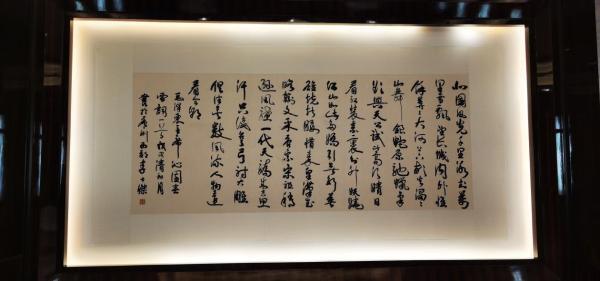 北國風光千里冰封萬
里雪飄望長城內外惟
餘莽莽大河上下頓失滔滔
山舞銀蛇原馳蠟象
欲與天公試比高須晴日
看紅裝素裹分外妖嬈
江山如此多嬌引無數英
雄競折腰惜秦皇漢武
略輸文采唐宗宋祖稍
遜風騷一代天驕成吉思
汗只識彎弓射大雕
俱往矣數風流人物還
看今朝
毛澤東主席沁園春
雪詞
州